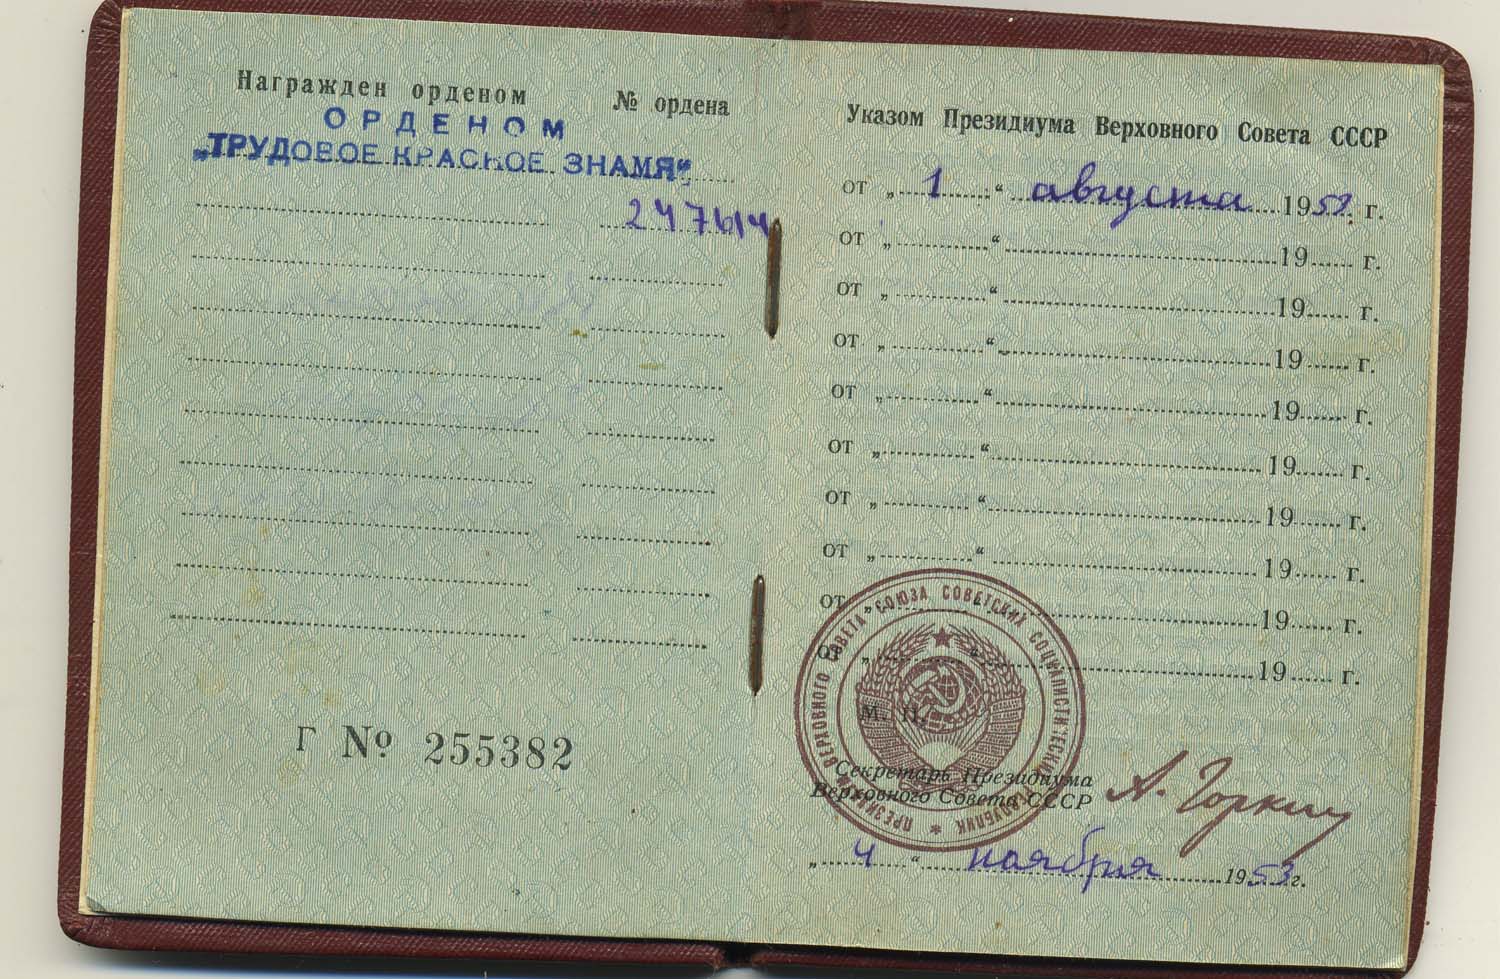 Награжден орденом № ордена
ОРДЕНОМ
„ТРУДОВОЕ КРАСНОЕ ЗНАМЯ“
247614
Г № 255382
Указом Президиума Верховного Совета СССР
от „ 1 “ августа 1952 г.
от „ “ 19 г.
от „ “ 19 г.
от „ “ 19 г.
от „ “ 19 г.
от „ “ 19 г.
от „ “ 19 г.
от „ “ 19 г.
от „ 19 г.
от „ “ 19 г.
М. П.
ПРЕЗИДИУМ ВЕРХОВНОГО СОВЕТА СОЮЗА СОВЕТСКИХ СОЦИАЛИСТИЧЕСКИХ РЕСПУБЛИК
Секретарь Президиума
Верховного Совета СССР
А. Горкин
„ 4 “ ноября 1953 г.